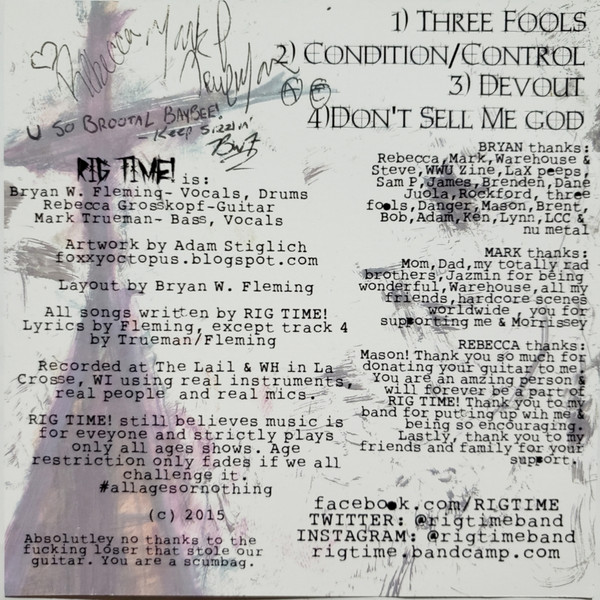 Rebecca Mark Trueman
U SO BROOTAL BAYBEE!
- KEEP SIZZLIN'
BWF
1) THREE FOOLS
2) CONDITION/CONTROL
3) DEVOUT
4)DON'T SELL ME GOD
RIG TIME! is:
Bryan W. Fleming- Vocals, Drums
Rebecca Grosskopf-Guitar
Mark Trueman- Bass, Vocals
Artwork by Adam Stiglich
foxxyoctopus.blogspot.com
Layout by Bryan W. Fleming
All songs written by RIG TIME!
Lyrics by Fleming, except track 4
by Trueman/Fleming
Recorded at The Lail & WH in La
Crosse, WI using real instruments,
real people and real mics.
RIG TIME! still believes music is
for eveyone and strictly plays
only all ages shows. Age
restriction only fades if we all
challenge it.
#allagesornothing
(c) 2015
Absolutley no thanks to the
fucking loser that stole our
guitar. You are a scumbag.
BRYAN thanks:
Rebecca,Mark,Warehouse &
Steve,WWU Zine,LaX peeps,
Sam P,James,Brenden,Dane
Juola,Rockford, three
fools,Danger,Mason,Brent,
Bob,Adam,Ken,Lynn,LCC &
nu metal
MARK thanks:
Mom,Dad,my totally rad
brothers,Jazmin for being
wonderful,Warehouse,all my
friends,hardcore scenes
worldwide , you for
supporting me & Morrissey
REBECCA thanks:
Mason! Thank you so much for
donating your guitar to me.
You are an amzing person &
will forever be a part of
RIG TIME! Thank you to my
band for putting up wih me &
being so encouraging.
Lastly, thank you to my
friends and family for your
support.
facebook.com/RIGTIME
TWITTER: @rigtimeband
INSTAGRAM: @rigtimeband
rigtime.bandcamp.com